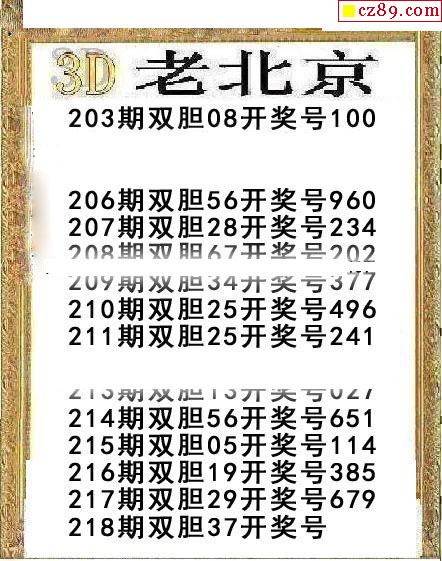 cz89.com
3D 老北京
203期双胆08开奖号100
206期双胆56开奖号960
207期双胆28开奖号234
208期双胆67开奖号202
209期双胆34开奖号377
210期双胆25开奖号496
211期双胆25开奖号241
213期双胆13开奖号027
214期双胆56开奖号651
215期双胆05开奖号114
216期双胆19开奖号385
217期双胆29开奖号679
218期双胆37开奖号